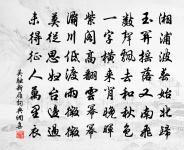 湘浦波春始北歸
玉關搖落又南飛
數聲飄去和秋色
一字橫來背晚暉
紫閣高翻雲冪冪
灞川低渡雨微微
莫從思婦臺邊過
未得征人萬里衣
吳融新雁詞典網書